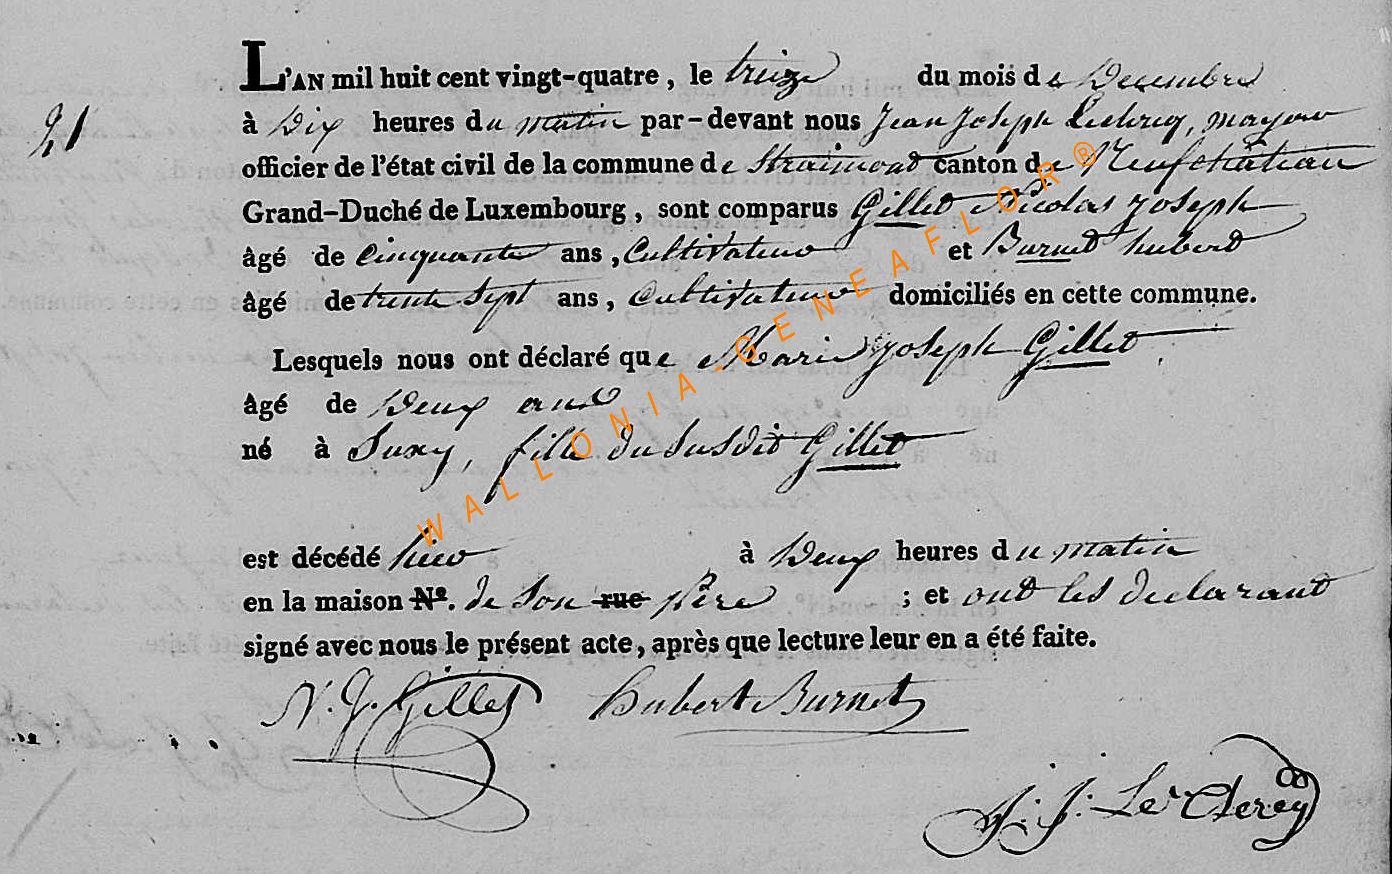 L'AN mil huit cent vingt-quatre, le treize du mois de Decembre
21
à Dix heures du matin par-devant nous Jean Joseph Leclercq, mayeur
officier de l'état civil de la commune de Straimont canton de Neufchâteau
Grand-Duché de Luxembourg, sont comparus Gillet Nicolas Joseph
âgé de cinquante ans, Cultivateur et Burnet hubert
âgé de trente Sept ans, Cultivateur domiciliés en cette commune.
Lesquels nous ont déclaré que Marie Joseph Gillet
âgé de Deux ans
né à Suxy, fille du Susdit Gillet
est décédé hier à Deux heures du matin
en la maison N°. de Son rue père ; et ont les declarant
signé avec nous le présent acte, après que lecture leur en a été faite.
N. J. Gillet Hubert Burnet
J. J. Le Clercq
WALLONIA-GENEAFLOR®